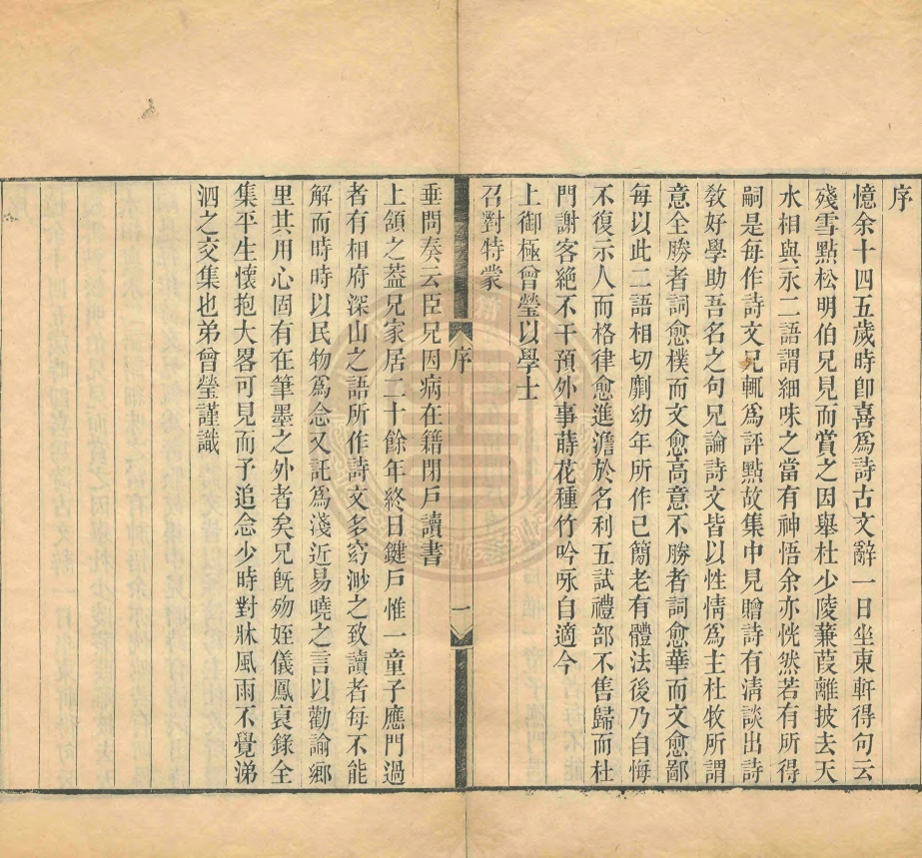 序
憶余十四五歲時卽喜爲詩古文辭一日坐東軒得句云
殘雪點松明伯兄見而賞之因舉杜少陵蒹葭離披去天
水相與永二語謂細味之當有神悟余亦恍然若有所得
嗣是每作詩文兄輒爲評點故集中見贈詩有淸談出詩
敎好學助吾名之句兄論詩文皆以性情爲主杜牧所謂
意全勝者詞愈樸而文愈高意不勝者詞愈華而文愈鄙
每以此二語相切劘幼年所作已簡老有體法後乃自悔
不復示人而格律愈進澹於名利五試禮部不售歸而杜
門謝客絕不干預外事蒔花種竹吟咏自適今
上御極曾瑩以學士
召對特蒙
序
一
垂問奏云臣兄因病在籍閉戶讀書
上頷之蓋兄家居二十餘年終日鍵戶惟一童子應門過
者有相府深山之語所作詩文多窈渺之致讀者每不能
解而時時以民物爲念又託爲淺近易曉之言以勸諭鄉
里其用心固有在筆墨之外者矣兄旣歿姪儀鳳裒錄全
集平生懷抱大畧可見而予追念少時對牀風雨不覺涕
泗之交集也弟曾瑩謹識